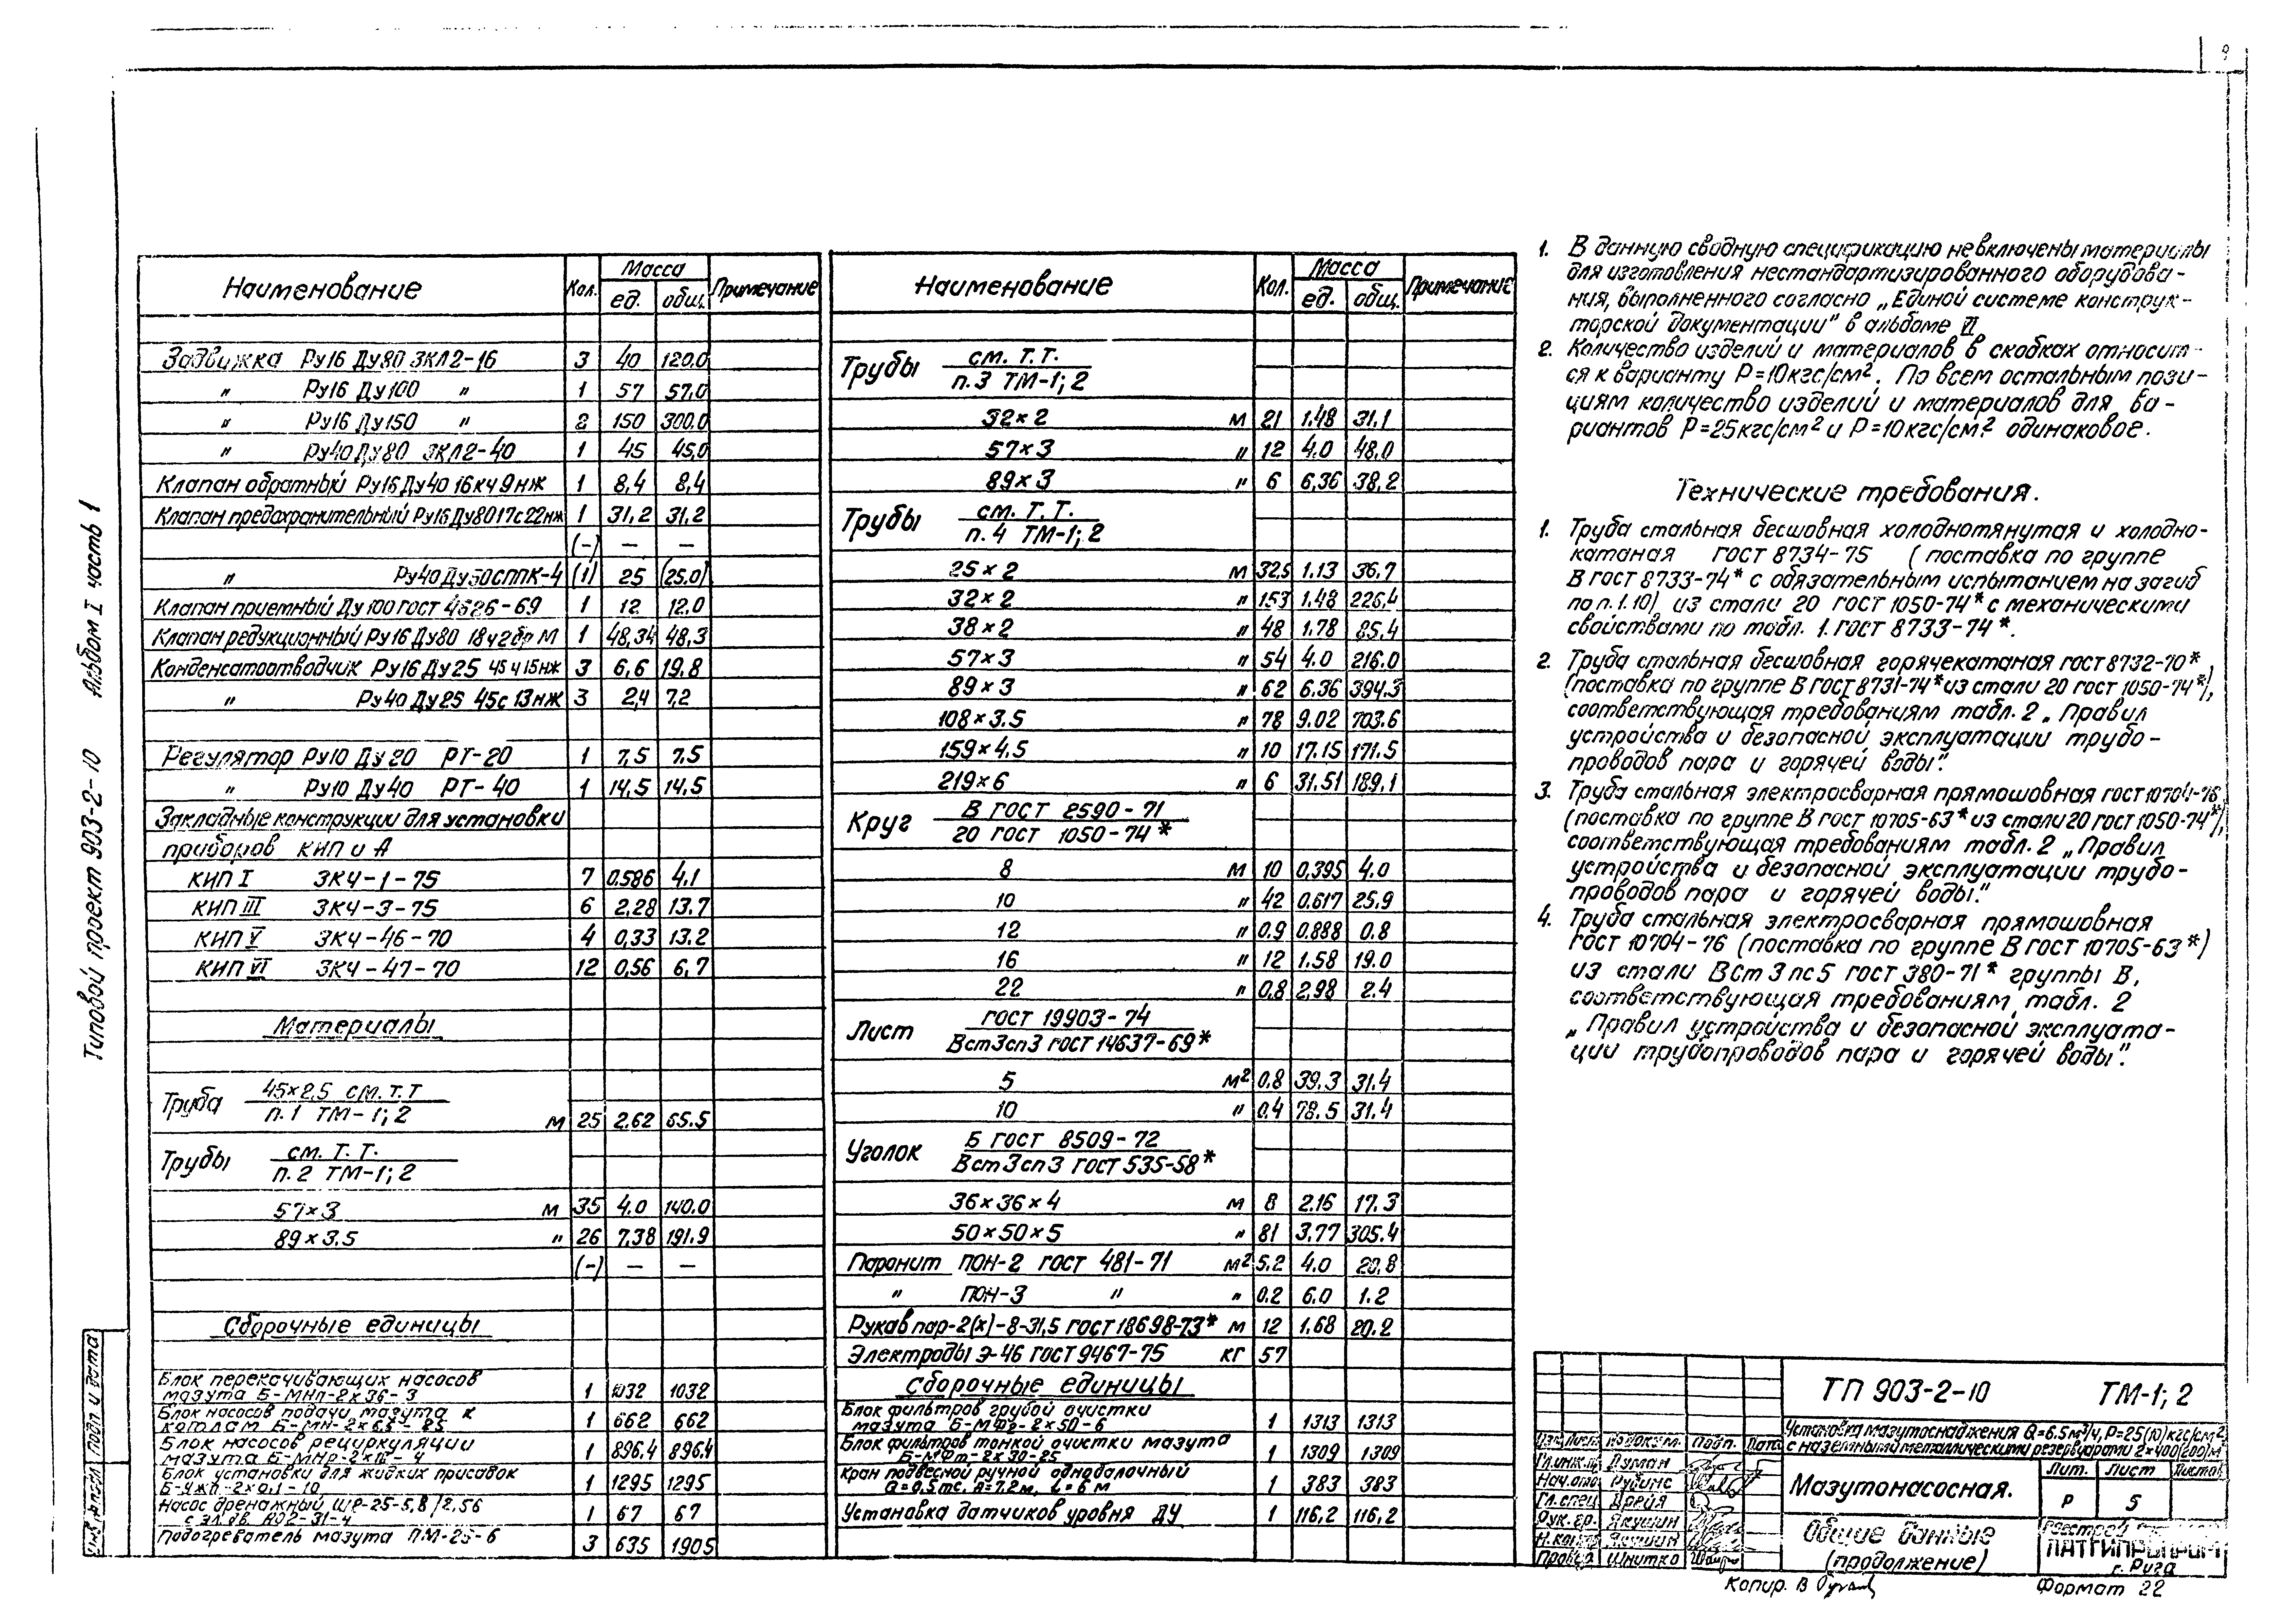 9
Типовой проект 903-2-10 Альбом I часть 1
Наименование Кол. Масса Примечание
ед. общ.
Задвижка Ру16 Ду80 ЗКЛ2-16 3 40 120.0
" Ру16 Ду100 " 1 57 57.0
" Ру16 Ду150 " 2 150 300.0
" Ру40 Ду80 ЗКЛ2-40 1 45 45.0
Клапан обратный Ру16 Ду40 16кч9нж 1 8,4 8,4
Клапан предохранительный Ру16 Ду80 17с22нж 1 31,2 31,2
(-) — —
" Ру40 Ду50 СППК-4 (1) 25 (25.0)
Клапан приемный Ду100 ГОСТ 4626-69 1 12 12.0
Клапан редукционный Ру16 Ду80 18ч2бр М 1 48,34 48,3
Конденсатоотводчик Ру16 Ду25 45ч15нж 3 6,6 19.8
" Ру40 Ду25 45с13нж 3 2,4 7,2
Регулятор Ру10 Ду20 РТ-20 1 7,5 7,5
" Ру10 Ду40 РТ-40 1 14,5 14,5
Закладные конструкции для установки
приборов КИП и А
КИП I ЗКЧ-1-75 7 0.586 4.1
КИП III ЗКЧ-3-75 6 2.28 13.7
КИП V ЗКЧ-46-70 4 0,33 13.2
КИП VI ЗКЧ-47-70 12 0,56 6,7
Материалы
Труба 45×2,5 см. Т.Т
п.1 ТМ-1; 2 м 25 2.62 65.5
Трубы см. Т.Т.
п.2 ТМ-1; 2
57×3 м 35 4.0 140.0
89×3.5 " 26 7.38 191.9
(-) — —
Сборочные единицы
Блок перекачивающих насосов
мазута Б-МНП-2×36-3 1 1032 1032
Блок насосов подачи мазута к
котлам Б-МН-2×6,5-25 1 662 662
Блок насосов рециркуляции
мазута Б-МНР-2×18-4 1 896.4 896.4
Блок установки для жидких присадок
Б-УЖП-2×0,1-10 1 1295 1295
Насос дренажный ШР-25-5,8/2,5б
с эл.дв. АО2-31-4 1 67 67
Подогреватель мазута ПМ-25-6 3 635 1905
Наименование Кол. Масса Примечание
ед. общ.
Трубы см. Т.Т.
п.3 ТМ-1; 2
32×2 м 21 1.48 31.1
57×3 " 12 4.0 48.0
89×3 " 6 6,36 38,2
Трубы см. Т.Т.
п.4 ТМ-1; 2
25×2 м 32,5 1.13 36.7
32×2 " 153 1.48 226.4
38×2 " 48 1.78 85.4
57×3 " 54 4.0 216.0
89×3 " 62 6.36 394.3
108×3.5 " 78 9.02 703.6
159×4.5 " 10 17.15 171.5
219×6 " 6 31.51 189.1
Круг В ГОСТ 2590-71
20 ГОСТ 1050-74*
8 м 10 0,395 4.0
10 " 42 0.617 25.9
12 " 0.9 0.888 0.8
16 " 12 1.58 19.0
22 " 0,8 2.98 2.4
Лист ГОСТ 19903-74
ВСт3сп3 ГОСТ 14637-69*
5 м² 0.8 39.3 31.4
10 " 0.4 78.5 31.4
Уголок Б ГОСТ 8509-72
ВСт3сп3 ГОСТ 535-58*
36×36×4 м 8 2.16 17.3
50×50×5 " 81 3.77 305.4
Паронит ПОН-2 ГОСТ 481-71 м² 5.2 4.0 20,8
" ПОН-3 " " 0.2 6.0 1.2
Рукав пар-2(х)-8-31,5 ГОСТ 18698-73* м 12 1,68 20.2
Электроды Э-46 ГОСТ 9467-75 кг 57
Сборочные единицы
Блок фильтров грубой очистки
мазута Б-МФг-2×50-6 1 1313 1313
Блок фильтров тонкой очистки мазута
Б-МФт-2×30-25 1 1309 1309
Кран подвесной ручной однобалочный
Q=0.5тс, А=7.2м, L=6м 1 383 383
Установка датчиков уровня ДУ 1 116,2 116,2
1. В данную сводную спецификацию не включены материалы
для изготовления нестандартизированного оборудова-
ния, выполненного согласно „Единой системе конструк-
торской документации" в альбоме VI
2. Количество изделий и материалов в скобках относит-
ся к варианту Р=10кгс/см². По всем остальным пози-
циям количество изделий и материалов для ва-
риантов Р=25кгс/см² и Р=10кгс/см² одинаковое.
Технические требования.
1. Труба стальная бесшовная холоднотянутая и холодно-
катаная ГОСТ 8734-75 (поставка по группе
В ГОСТ 8733-74* с обязательным испытанием на загиб
по п.1.10) из стали 20 ГОСТ 1050-74* с механическими
свойствами по табл. 1. ГОСТ 8733-74*.
2. Труба стальная бесшовная горячекатаная ГОСТ 8732-70*
(поставка по группе В ГОСТ 8731-74* из стали 20 ГОСТ 1050-74*),
соответствующая требованиям табл. 2 „Правил
устройства и безопасной эксплуатации трубо-
проводов пара и горячей воды".
3. Труба стальная электросварная прямошовная ГОСТ 10704-76
(поставка по группе В ГОСТ 10705-63* из стали 20 ГОСТ 1050-74*),
соответствующая требованиям табл. 2 „Правил
устройства и безопасной эксплуатации трубо-
проводов пара и горячей воды".
4. Труба стальная электросварная прямошовная
ГОСТ 10704-76 (поставка по группе В ГОСТ 10705-63*)
из стали ВСт3пс5 ГОСТ 380-71* группы В,
соответствующая требованиям табл. 2
„Правил устройства и безопасной эксплуата-
ции трубопроводов пара и горячей воды".
ТП 903-2-10 ТМ-1; 2
Установка мазутоснабжения Q=6.5м³/ч, Р=25(10)кгс/см²
с наземными металлическими резервуарами 2×400(200)м³
Изм. Лист № докум. Подп. Дата
Гл.инж.пр Думан
Нач.отд Рубинс
Гл.спец Дрейя
Рук.гр. Якушин
Н.конт. Якушин
Провер. Шнитко
Мазутонасосная.
Лит. Лист Листов
Р 5
Общие данные
(продолжение)
ЛАТГИПРОПРОМ
г. Рига
Копир. В
Формат 22
Инв.№ подл Подп. и дата